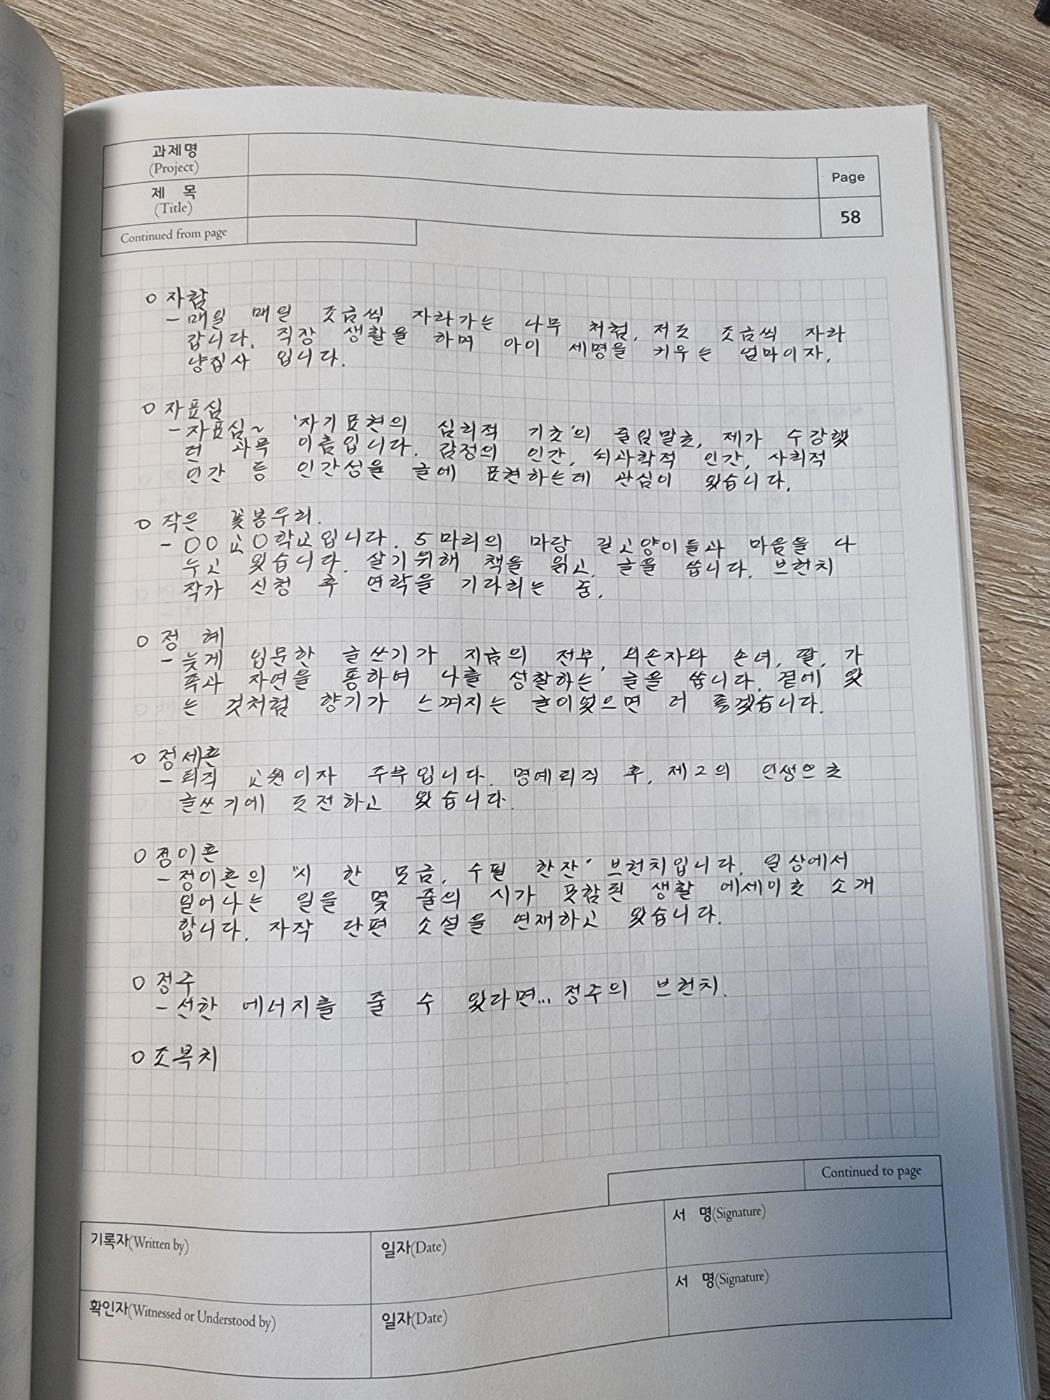 과제명
(Project)
제 목
(Title)
Page
58
Continued from page
○ 자람
- 매일 매일 조금씩 자라가는 나무 처럼, 저도 조금씩 자라
갑니다. 직장 생활을 하며 아이 세명을 키우는 엄마이자,
냥집사 입니다.
○ 자표심
- 자표심~ '자기표현의 심리적 기초'의 줄임말로, 제가 수강했
던 과목 이름입니다. 감정의 인간, 뇌과학적 인간, 사회적
인간 등 인간성을 글에 표현하는데 관심이 있습니다.
○ 작은 꽃봉우리.
- ○○교○학교입니다. 5마리의 마당 길고양이들과 마음을 나
누고 있습니다. 살기위해 책을 읽고, 글을 씁니다. 브런치
작가 신청 후 연락을 기다리는 중.
○ 정 혜
- 늦게 입문한 글쓰기가 지금의 전부, 외손자와 손녀, 딸, 가
족과 자연을 통하여 나를 성찰하는 글을 씁니다. 곁에 있
는 것처럼 향기가 느껴지는 글이었으면 더 좋겠습니다.
○ 정세흔
- 퇴직 교원이자 주부입니다. 명예퇴직 후, 제2의 인생으로
글쓰기에 도전하고 있습니다.
○ 정이흔
- 정이흔의 "시 한 모금, 수필 한잔" 브런치입니다. 일상에서
일어나는 일을 몇 줄의 시가 포함된 생활 에세이로 소개
합니다. 자작 단편 소설을 연재하고 있습니다.
○ 정주
- 선한 에너지를 줄 수 있다면... 정주의 브런치.
○ 조복치
Continued to page
기록자(Written by)
일자(Date)
서 명(Signature)
확인자(Witnessed or Understood by)
일자(Date)
서 명(Signature)